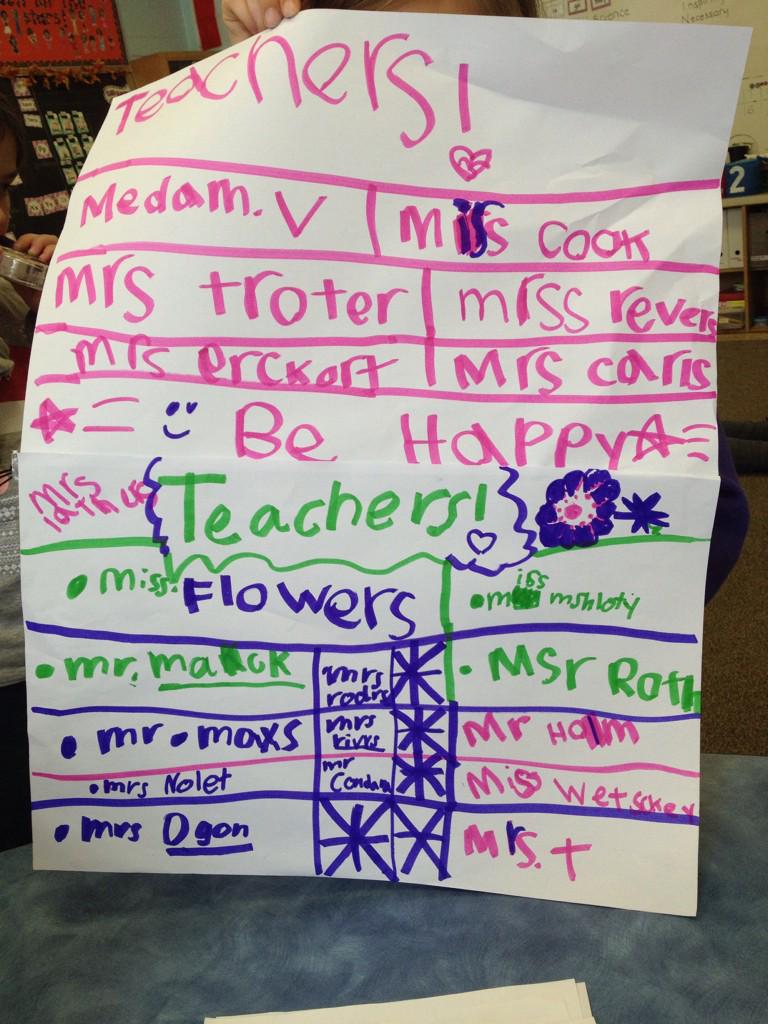 Science
Inspiring
Necessary
2
Teachers!
Medam. V
Miss Cook
mrs troter
mrss revers
mrs erckart
Mrs caris
Be Happy
mrs
Teachers!
miss. Flowers
miss mshloty
mr. malick
mrs rodrs
MSr Roth
mr. maxs
mrs rivrs
Mr Halm
mrs Nolet
mr Condan
Miss Wetsckey
mrs Ogon
Mrs. t